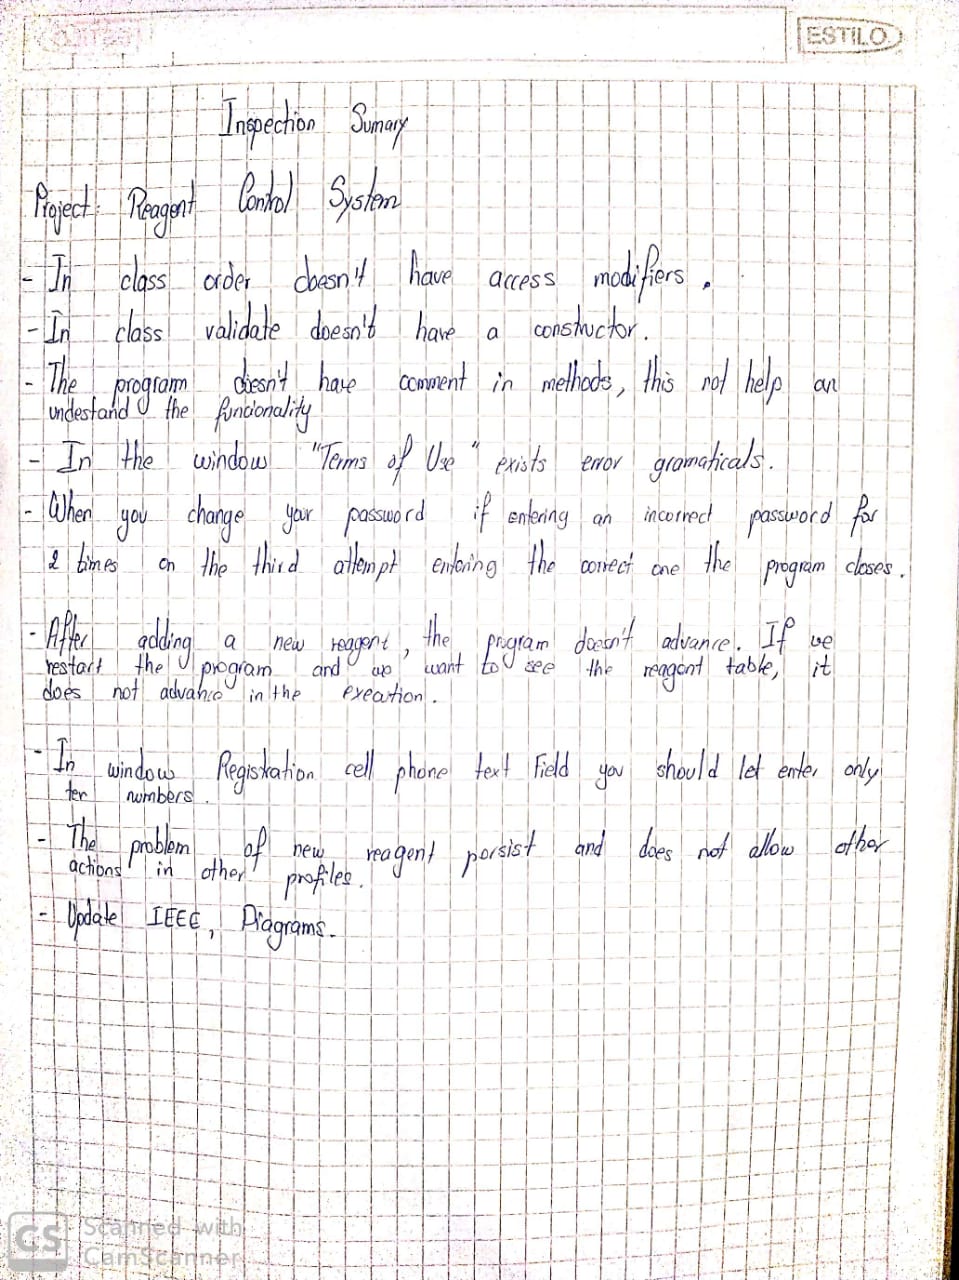 ESTILO
Inspection Sumary
Project: Reagent Control System
- In class order doesn't have access modifiers.
- In class validate doesn't have a constructor.
- The program doesn't have comment in methods, this not help an
undestand the funcionality
- In the window "Terms of Use" exists error gramaticals.
- When you change your password if entering an incorrect password for
2 times on the third attempt entering the correct one the program closes.
- After adding a new reagent, the program doesn't advance. If we
restart the program and we want to see the reagent table, it
does not advance in the execution.
- In window Registration cell phone text Field you should let enter only
ten numbers.
- The problem of new reagent persist and does not allow other
actions in other profiles.
- Update IEEE, Diagrams.
CS Scanned with
CamScanner